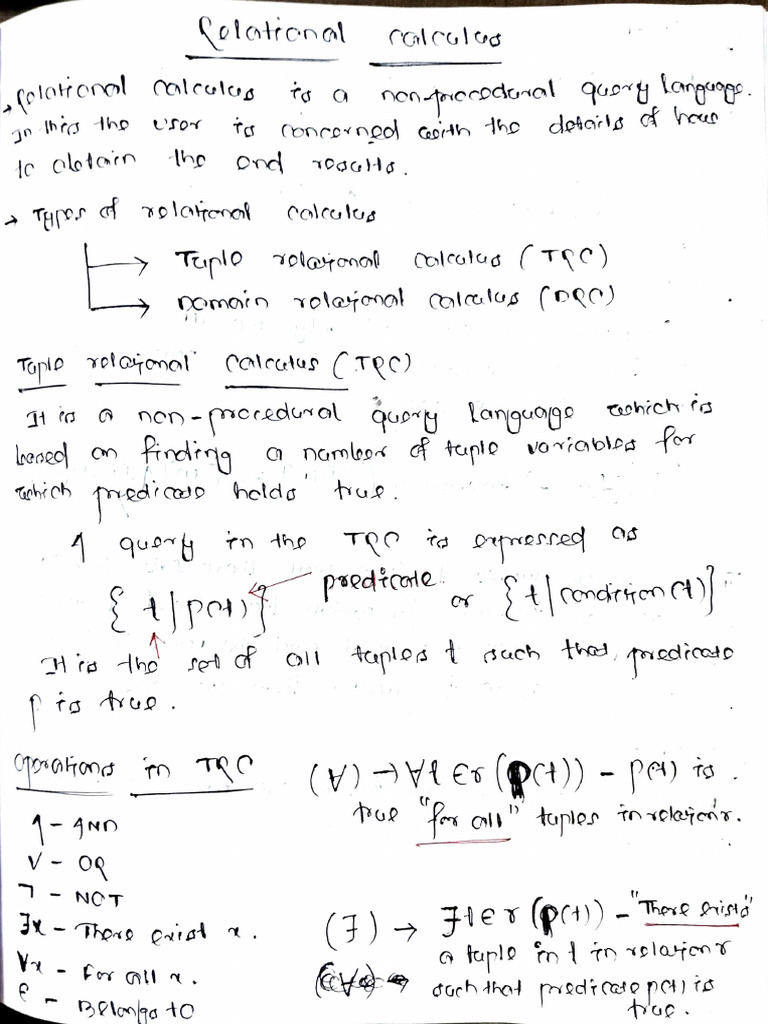 Relational calculus
→ Relational calculus is a non-procedural query language.
In this the user is concerned with the details of how
to obtain the end results.
→ Types of relational calculus
→ Tuple relational calculus (TRC)
→ Domain relational calculus (DRC)
Tuple relational calculus (TRC)
It is a non-procedural query language which is
based on finding a number of tuple variables for
which predicate holds true.
A query in the TRC is expressed as
{t | P(t)} predicate or {t | condition(t)}
It is the set of all tuples t such that predicate
P is true.
Operations in TRC
∧ - AND
∨ - OR
¬ - NOT
∃x - There exist x.
∀x - For all x.
∈ - Belongs to
(∀) → ∀t ∈ r (P(t)) - P(t) is
true "for all" tuples in relation r.
(∃) → ∃t ∈ r (P(t)) - "There exists"
a tuple in t in relation r
such that predicate p(t) is
true.